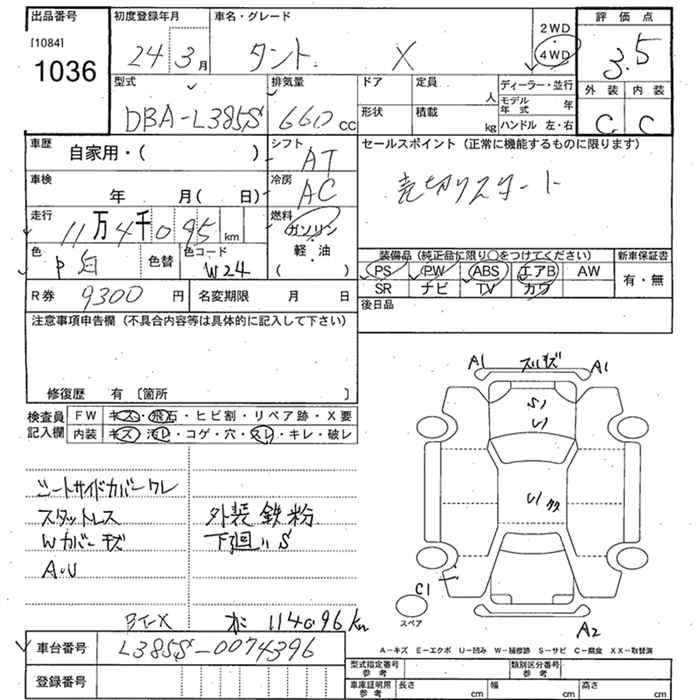 出品番号 初度登録年月 車名・グレード 2WD 評価点
[1084] 24 3月 タント X 4WD 3.5
1036
型式 排気量 ドア 定員 人 ディーラー・並行 外装 内装
DBA-L385S 660 CC 形状 積載 kg モデル年式 年 C C
ハンドル 左・右
車歴 自家用・( ) シフト AT セールスポイント (正常に機能するものに限ります)
車検 年 月( 日) 冷房 AC 売切りスタート
走行 11万4千095 km 燃料 ガソリン
軽・油
( )
色 白 色替 色コード W24 装備品(純正品に限り○をつけてください) 新車保証書
PS PW ABS エアB AW 有・無
SR ナビ TV カワ
R券 9300 円 名変期限 月 日 後日品
注意事項申告欄(不具合内容等は具体的に記入して下さい)
修復歴 有 [箇所 ]
検査員記入欄 FW キズ・飛石・ヒビ割・リペア跡・X要
内装 キズ・汚レ・コゲ・穴・スレ・キレ・破レ
A1 スリキズ A1
S1
U1
U1 クク
シートサイドカバークレ
スタットレス 外装鉄粉
Wカバーキズ 下廻りS
A・U
C1
スペア
A2
114096Km
A−キズ E−エクボ U−凹み W−補修跡 S−サビ C−腐食 XX−取替済
車台番号 L385S-0074396
登録番号
型式指定番号 参考 類別区分番号 参考
車庫証明用 参考 長さ cm 幅 cm 高さ cm